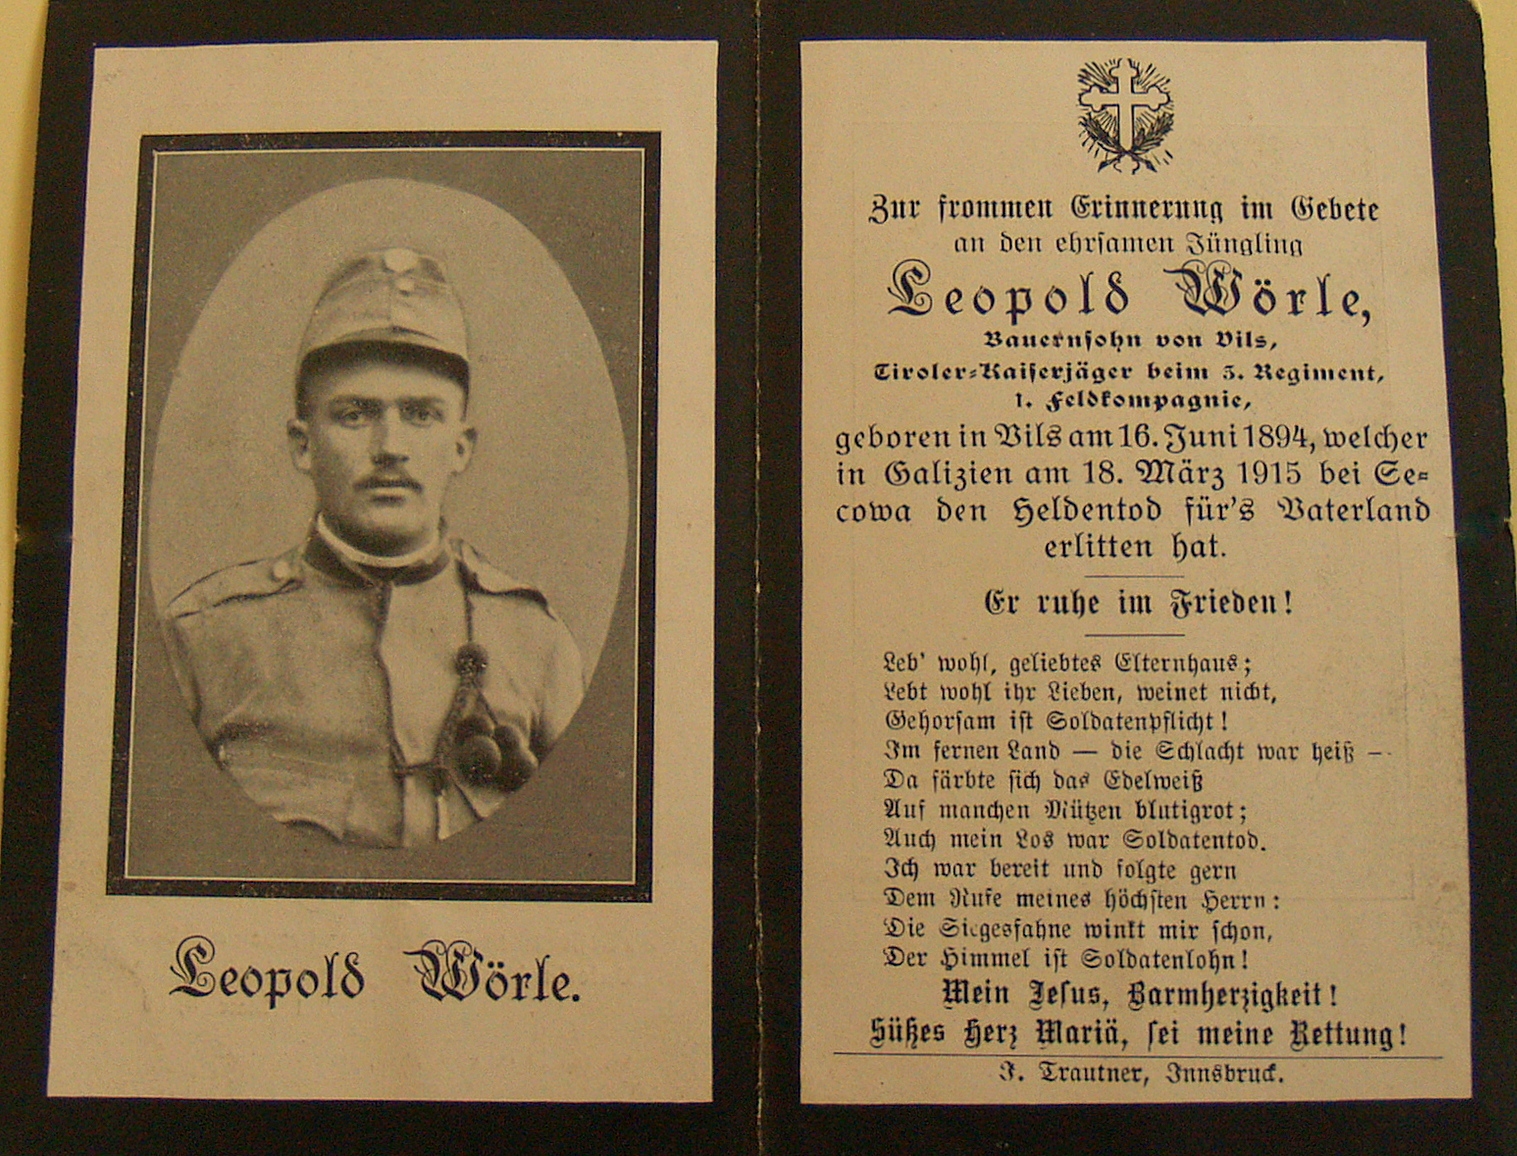 Leopold Wörle.
Zur frommen Erinnerung im Gebete
an den ehrsamen Jüngling
Leopold Wörle,
Bauernsohn von Vils,
Tiroler-Kaiserjäger beim 3. Regiment,
1. Feldkompagnie,
geboren in Vils am 16. Juni 1894, welcher
in Galizien am 18. März 1915 bei Se-
cowa den Heldentod für's Vaterland
erlitten hat.
Er ruhe im Frieden!
Leb' wohl, geliebtes Elternhaus;
Lebt wohl ihr Lieben, weinet nicht,
Gehorsam ist Soldatenpflicht!
Im fernen Land — die Schlacht war heiß —
Da färbte sich das Edelweiß
Auf manchen Mützen blutigrot;
Auch mein Los war Soldatentod.
Ich war bereit und folgte gern
Dem Rufe meines höchsten Herrn:
Die Siegesfahne winkt mir schon,
Der Himmel ist Soldatenlohn!
Mein Jesus, Barmherzigkeit!
Süßes Herz Mariä, sei meine Rettung!
J. Trautner, Innsbruck.